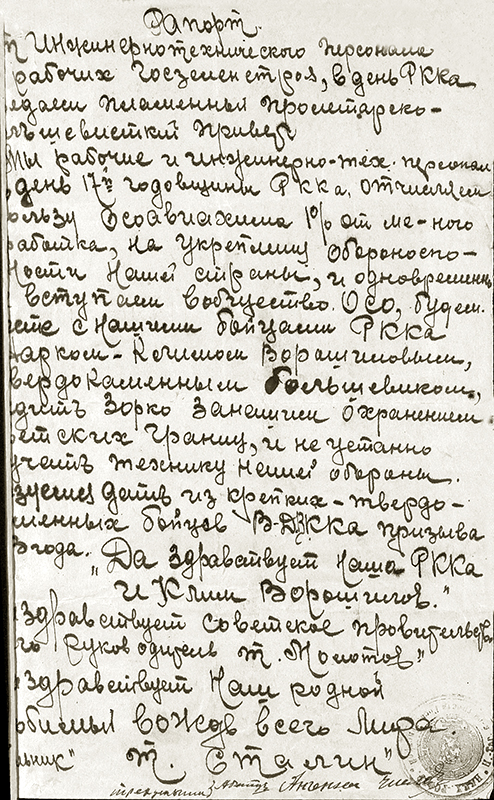 Рапорт.
т Инжинернотехнического персонала
рабочих Госземенстроя, в день РККА
едаем пламенный пролетарско-
льшевисткий привет
Мы рабочие и инжинерно-тех. персонал
день 17й годовщины РККА, отчисляем
ользу Осоавиахима 1% от ме-ного
работка, на укреплину Обороноспо-
ности нашей страны, и одновременн
вступаем вобчество. ОСО, будем
есте с нашими бойцами РККА
аркоми-Климом Ворошиловым,
вердокаменным большевиком,
едить зорко занашим Охранением
етских границ, и не устанно
учать технику нашей обороны.
дать из крепких-твердо-
менных бойцов РККА призыва
года. "Да здравствует наша РККА
и Клим Ворошилов."
здравствует советское провительств
его руководитель т. Молотов"
здравствует Наш родной
юбимый вождь всего мира.
льник" т. Сталин"